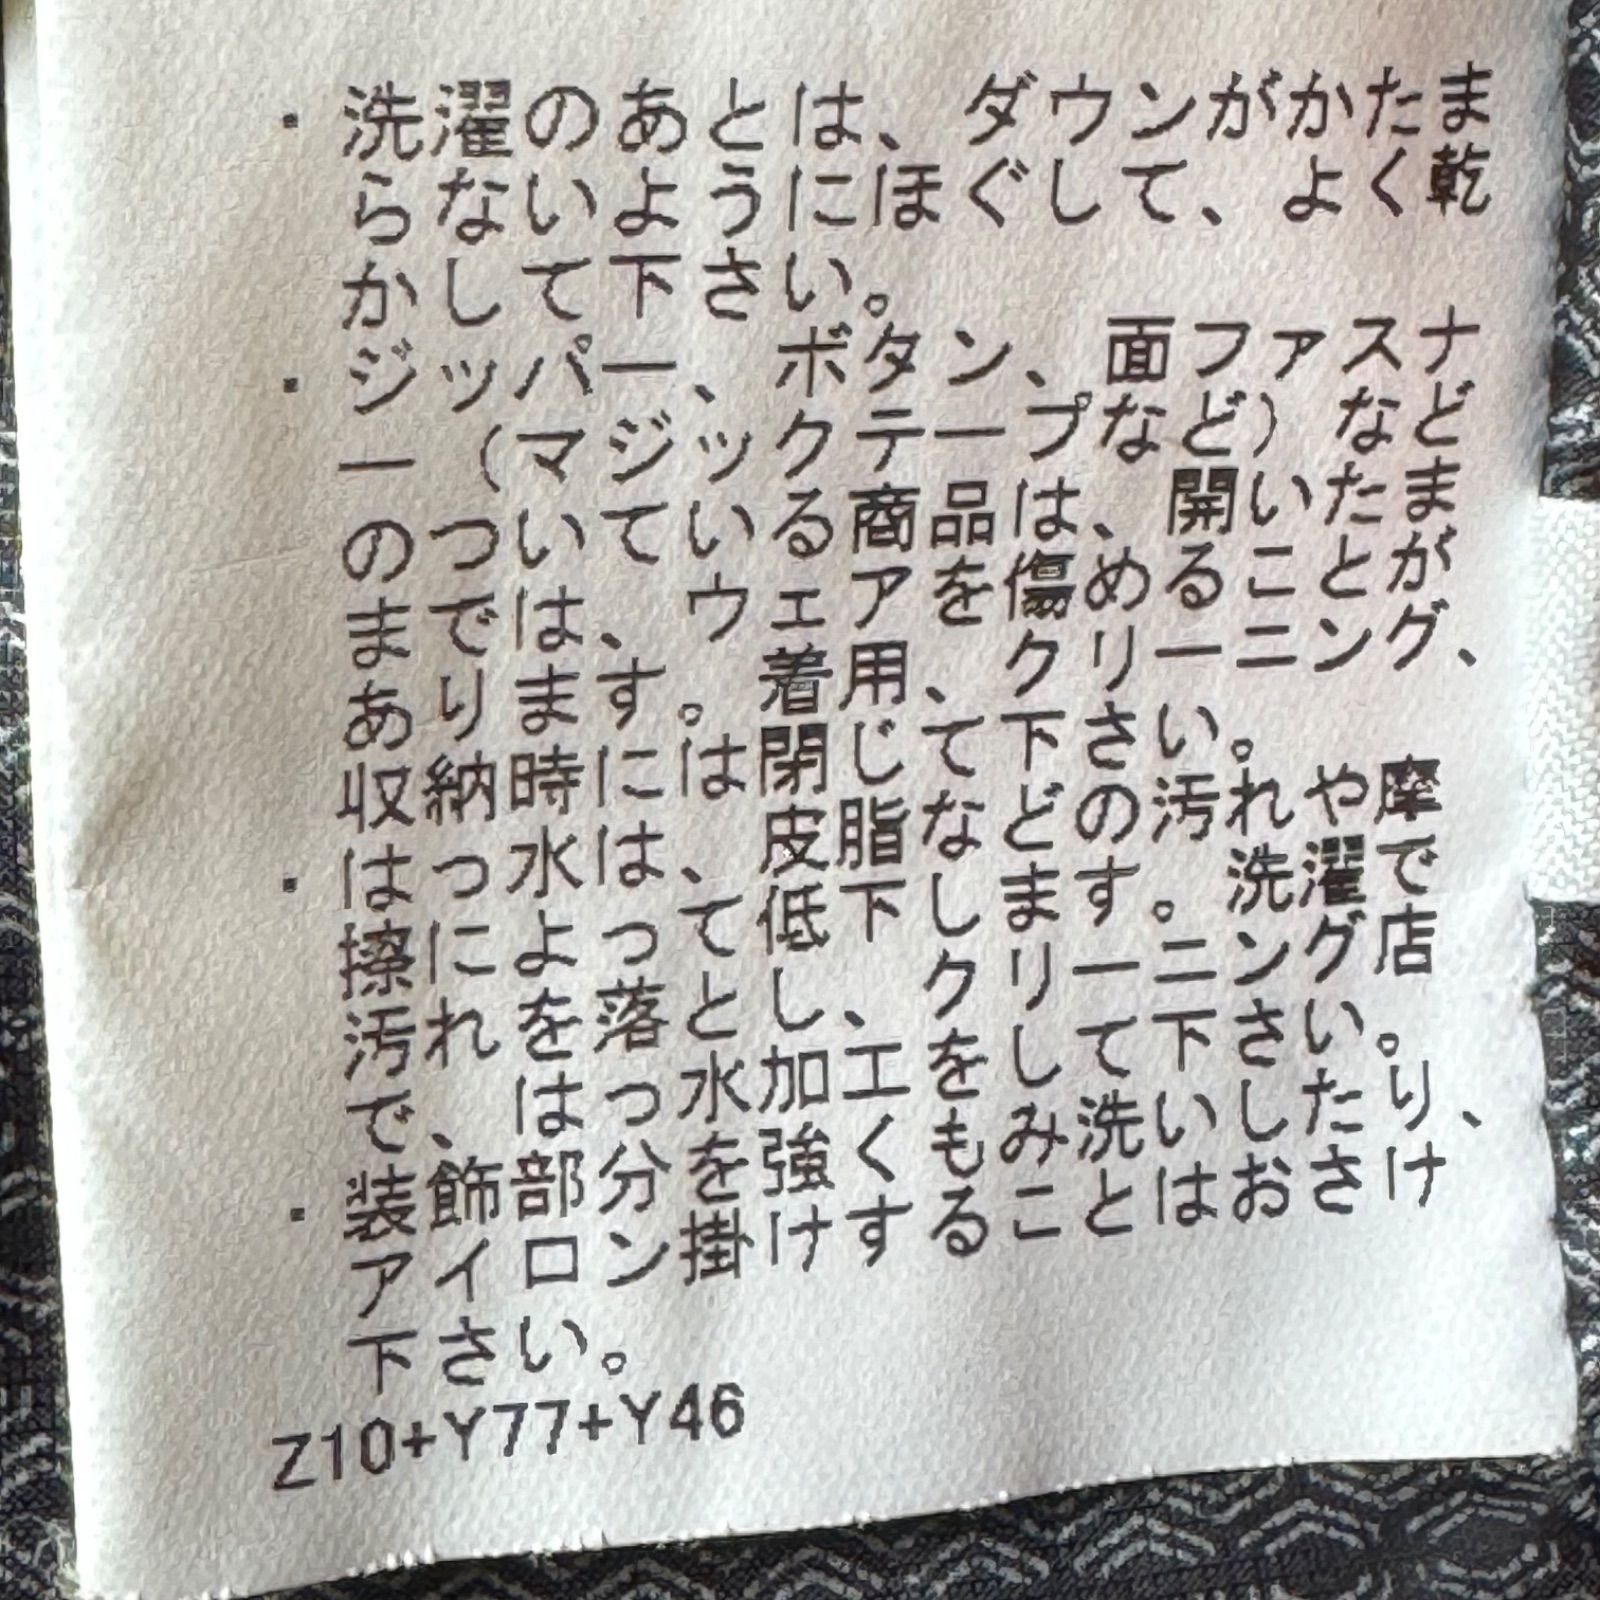 ・洗濯のあとは、ダウンがかたま
らないようにほぐして、よく乾
かして下さい。
・ジッパー、ボタン、面ファスナ
ー（マジックテープなど）など
のついている商品は、開いたま
までは、ウェアを傷めることが
あります。着用、クリーニング、
収納時には閉じて下さい。
・はっ水は、皮脂などの汚れや摩
擦によって低下します。洗濯で
汚れを落とし、クリーニング店
で、はっ水加工をして下さい。
・装飾部分を強くもみ洗いしたり、
アイロン掛けすることはおさけ
下さい。
Z10+Y77+Y46